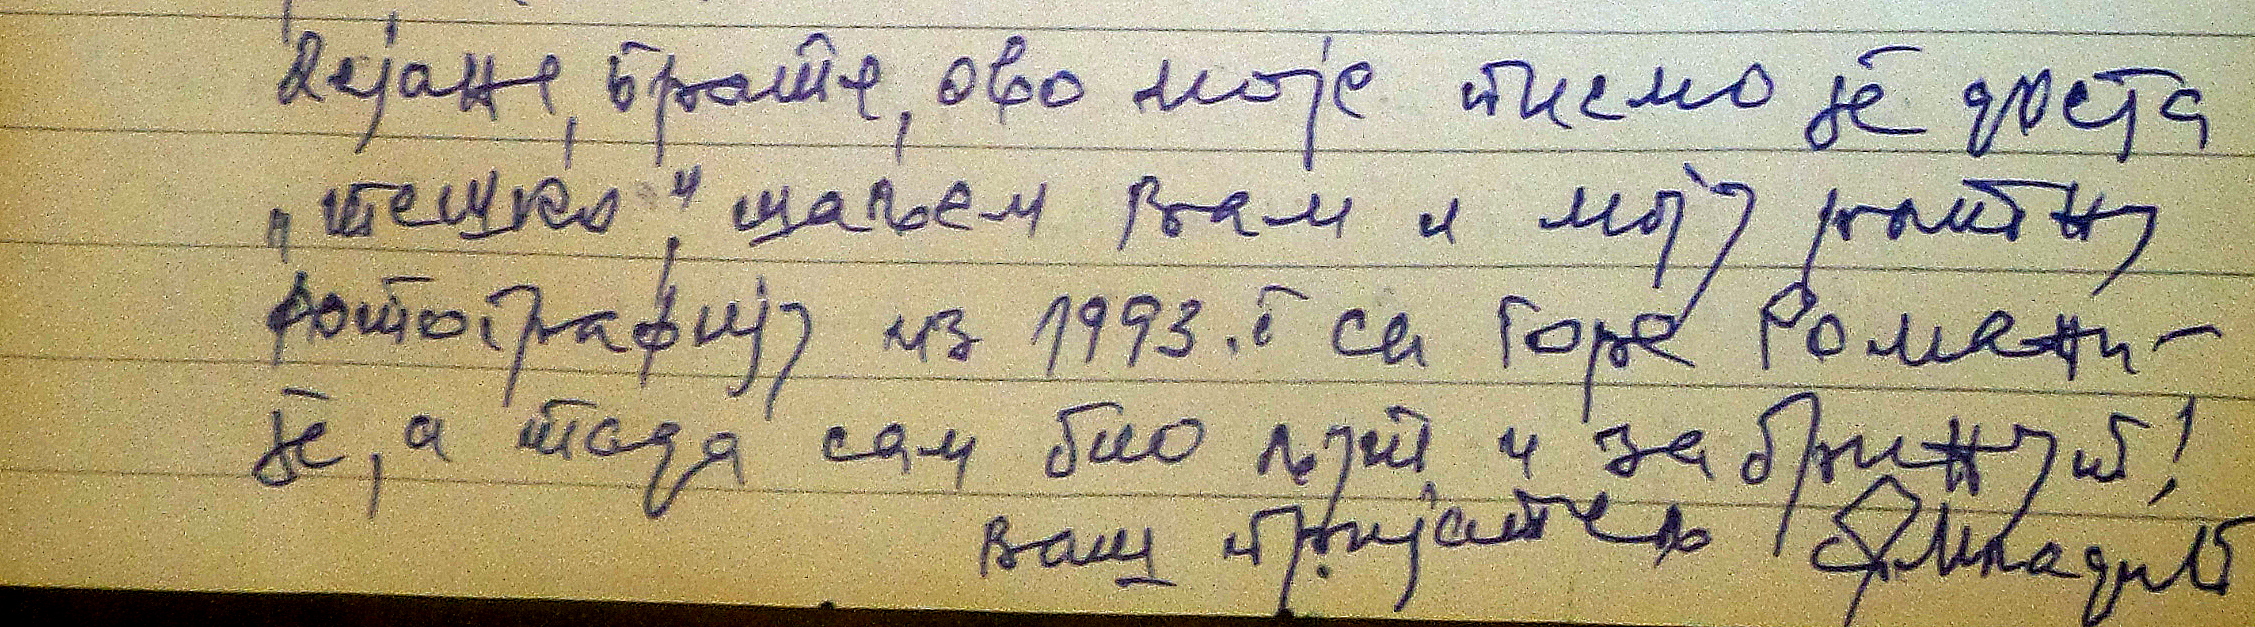 Дејане, брате, ово моје писмо је доста
„тешко“, шаљем вам и моју ратну
фотографију из 1993. г са горе Романи-
је, а тада сам био љут и забринут!
Ваш пријатељ РМладић